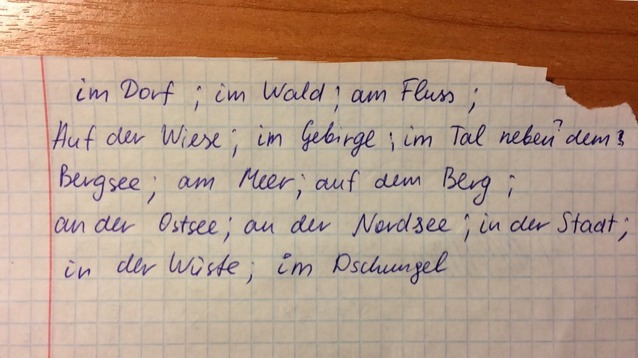 im Dorf ; im Wald ; am Fluss ;
Auf der Wiese ; im Gebirge ; im Tal neben? dem
Bergsee ; am Meer ; auf dem Berg ;
an der Ostsee ; an der Nordsee ; in der Stadt ;
in der Wüste ; im Dschungel